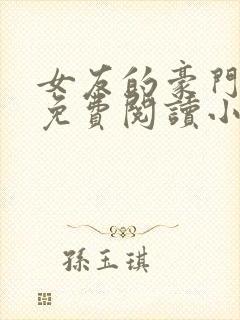 女友的豪門
免費閱讀小
孫玉琪